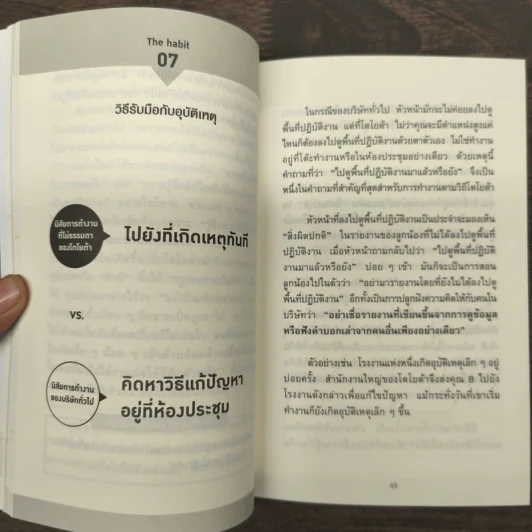 The habit
07
วิธีรับมือกับอุบัติเหตุ
นิสัยการทำงาน
ที่ไม่ธรรมดา
ของโตโยต้า
ไปยังที่เกิดเหตุทันที
VS.
นิสัยการทำงาน
ของบริษัททั่วไป
คิดหาวิธีแก้ปัญหา
อยู่ที่ห้องประชุม
ในกรณีของบริษัททั่วไป หัวหน้ามักจะไม่ค่อยลงไปดู
พื้นที่ปฏิบัติงาน แต่ที่โตโยต้า ไม่ว่าคุณจะมีตำแหน่งสูงแค่
ไหนก็ต้องลงไปดูพื้นที่ปฏิบัติงานด้วยตาตัวเอง ไม่ใช่ทำงาน
อยู่ที่โต๊ะทำงานหรือในห้องประชุมอย่างเดียว ด้วยเหตุนี้
คำถามที่ว่า “ไปดูพื้นที่ปฏิบัติงานมาแล้วหรือยัง” จึงเป็น
หนึ่งในคำถามที่สำคัญที่สุดสำหรับการทำงานตามวิถีโตโยต้า
หัวหน้าที่ลงไปดูพื้นที่ปฏิบัติงานเป็นประจำจะมองเห็น
“สิ่งผิดปกติ” ในรายงานของลูกน้องที่ไม่ได้ลงไปดูพื้นที่
ปฏิบัติงาน เมื่อหัวหน้าถามกลับไปว่า “ไปดูพื้นที่ปฏิบัติ
งานมาแล้วหรือยัง” บ่อย ๆ เข้า มันก็จะเป็นการสอน
ลูกน้องไปในตัวว่า “อย่ามารายงานโดยที่ยังไม่ได้ลงไปดู
พื้นที่ปฏิบัติงาน” อีกทั้งเป็นการปลูกฝังความคิดให้กับคนใน
บริษัทว่า “อย่าเชื่อรายงานที่เขียนขึ้นจากการดูข้อมูล
หรือฟังคำบอกเล่าจากคนอื่นเพียงอย่างเดียว”
ตัวอย่างเช่น โรงงานแห่งหนึ่งเกิดอุบัติเหตุเล็ก ๆ อยู่
บ่อยครั้ง สำนักงานใหญ่ของโตโยต้าจึงส่งคุณ B ไปยัง
โรงงานดังกล่าวเพื่อแก้ไขปัญหา แม้กระทั่งวันที่เขาเริ่ม
ทำงานก็ยังเกิดอุบัติเหตุเล็ก ๆ ขึ้น
49